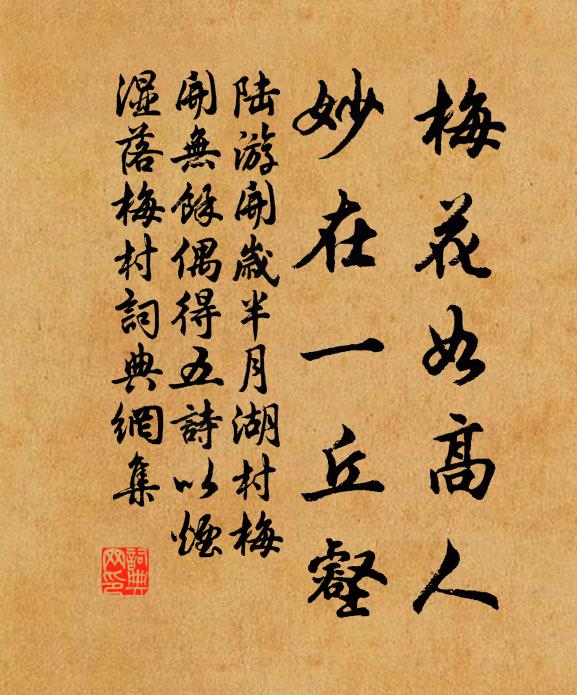 梅花如高人
妙在一丘壑
陆游開歲半月湖村梅
開無餘偶得五詩以煙
濕落梅村詞典網集
詞典网印